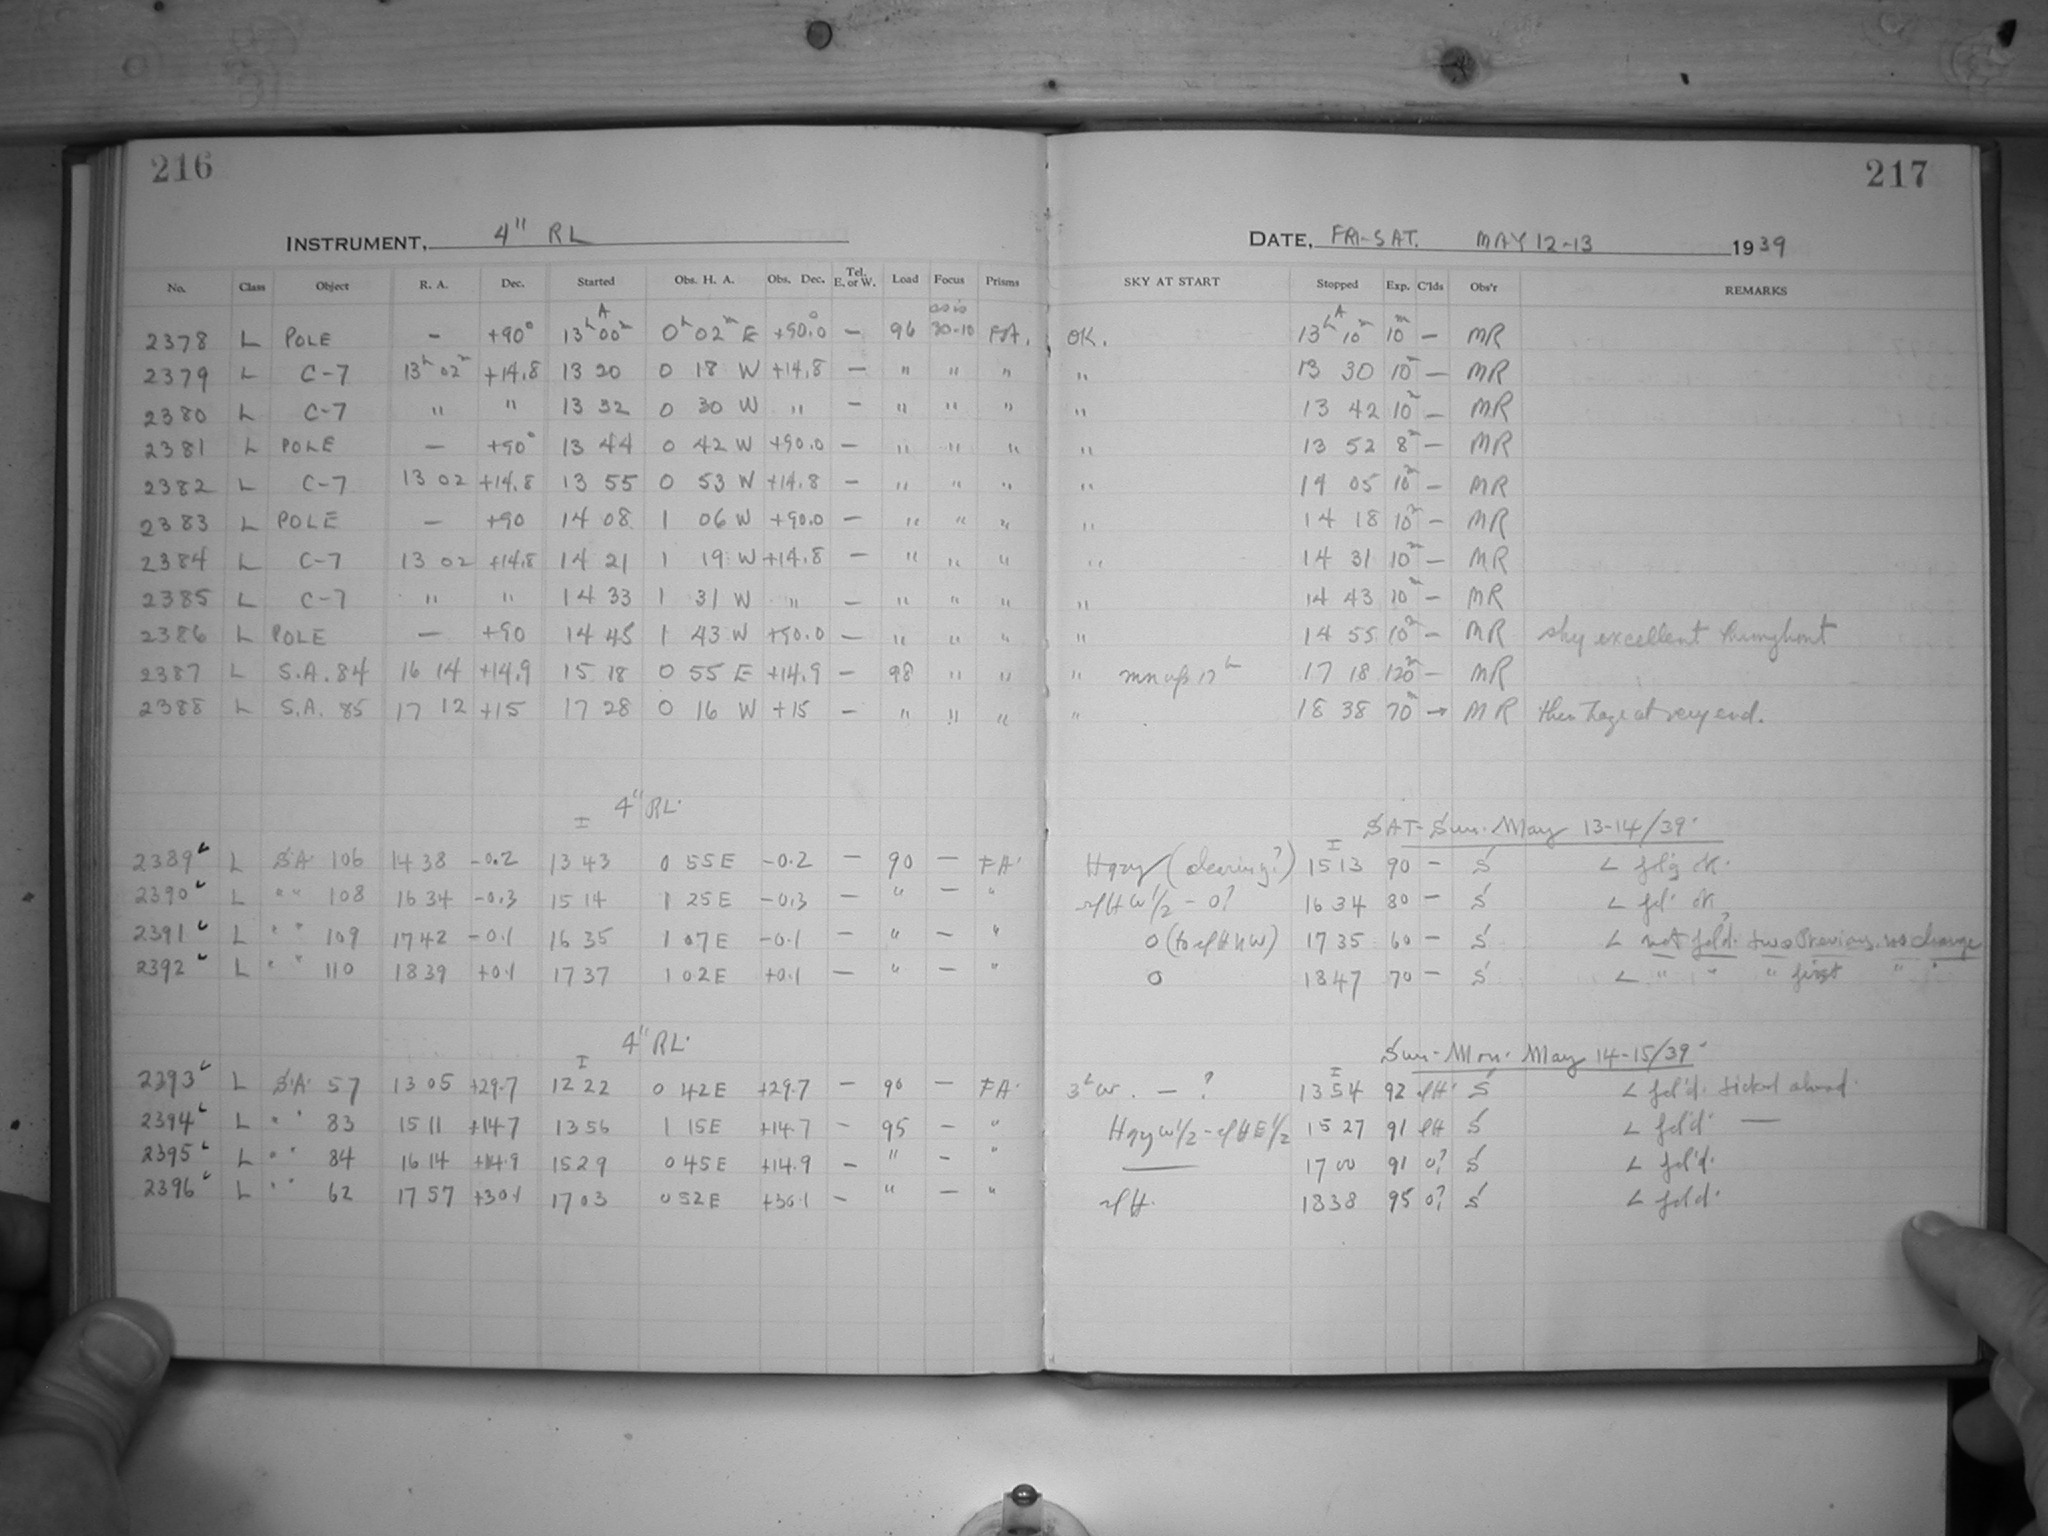 216
217
INSTRUMENT, 4" RL DATE, FRI-SAT. MAY 12-13 1939
No. Class Object R. A. Dec. Started Obs. H. A. Obs. Dec. Tel. E. or W. Load Focus Prisms SKY AT START Stopped Exp. C'lds Obs'r REMARKS
2378 L POLE — +90° 13h 00m A 0h 02m E +90.0° — 96 30-10 F.A. OK. 13h 10m A 10m — MR
2379 L C-7 13h 02m +14.8 13 20 0 18 W +14.8 — " " " " 13 30 10m — MR
2380 L C-7 " " 13 32 0 30 W " — " " " " 13 42 10m — MR
2381 L POLE — +90° 13 44 0 42 W +90.0 — " " " " 13 52 8m — MR
2382 L C-7 13 02 +14.8 13 55 0 53 W +14.8 — " " " " 14 05 10m — MR
2383 L POLE — +90 14 08 1 06 W +90.0 — " " " " 14 18 10m — MR
2384 L C-7 13 02 +14.8 14 21 1 19 W +14.8 — " " " " 14 31 10m — MR
2385 L C-7 " " 14 33 1 31 W " — " " " " 14 43 10m — MR
2386 L POLE — +90 14 45 1 43 W +90.0 — " " " " 14 55 10m — MR sky excellent throughout
2387 L S.A. 84 16 14 +14.9 15 18 0 55 E +14.9 — 98 " " " mn up 17h 17 18 120m — MR
2388 L S.A. 85 17 12 +15 17 28 0 16 W +15 — " " " " 18 38 70m → MR then haze at very end.
4" RL. SAT-Sun. May 13-14/39.
2389 L S.A. 106 14 38 -0.2 I 13 43 0 55 E -0.2 — 90 — FA. Hazy (clearing?) I 15 13 90 — S L
2390 L " " 108 16 34 -0.3 15 14 1 25 E -0.3 — " — " W 1/2 - 0? 16 34 80 — S L
2391 L " " 109 17 42 -0.1 16 35 1 07 E -0.1 — " — " 0 17 35 60 — S L not two previous. no change
2392 L " " 110 18 39 +0.1 17 37 1 02 E +0.1 — " — " 0 18 47 70 — S L " " " first " "
4" RL. Sun-Mon. May 14-15/39.
2393 L S.A. 57 13 05 +29.7 I 12 22 0 42 E +29.7 — 90 — FA. — ? I 13 54 92 S L
2394 L " " 83 15 11 +14.7 13 56 1 15 E +14.7 — 95 — " 15 27 91 S L —
2395 L " " 84 16 14 +14.9 15 29 0 45 E +14.9 — " — " — 17 00 91 0? S L
2396 L " " 62 17 57 +30.1 17 03 0 52 E +30.1 — " — " 18 38 95 0? S L